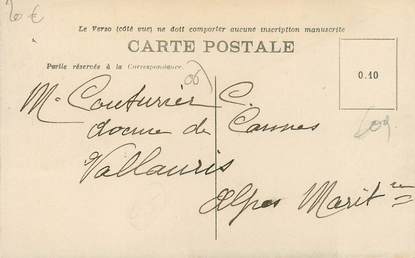 20 €
Le Verso (côté vue) ne doit comporter aucune inscription manuscrite
CARTE POSTALE
Partie réservée à la Correspondance
06
0.10
Mr Couturier C.
de Cannes
Vallauris
Alpes Maritmes